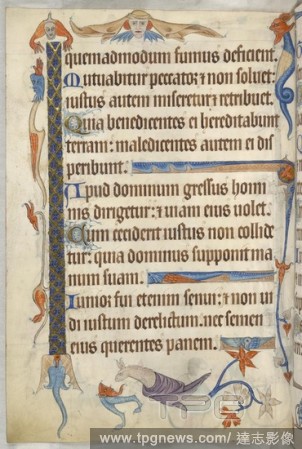 quemadmodum fumus deficient.
Mutuabitur peccator: ⁊ non soluet:
iustus autem miseretur ⁊ retribuet.
Quia benedicentes ei hereditabunt
terram: maledicentes autem ei dis
peribunt.
Apud dominum gressus homi
nis dirigetur: ⁊ uiam eius uolet.
Cum ceciderit iustus non collide
tur: quia dominus supponit ma
num suam.
Iunior fui etenim senui: ⁊ non ui
di iustum derelictum. nec semen
eius querentes panem.
TPG
www.tpgnews.com/ 達志影像